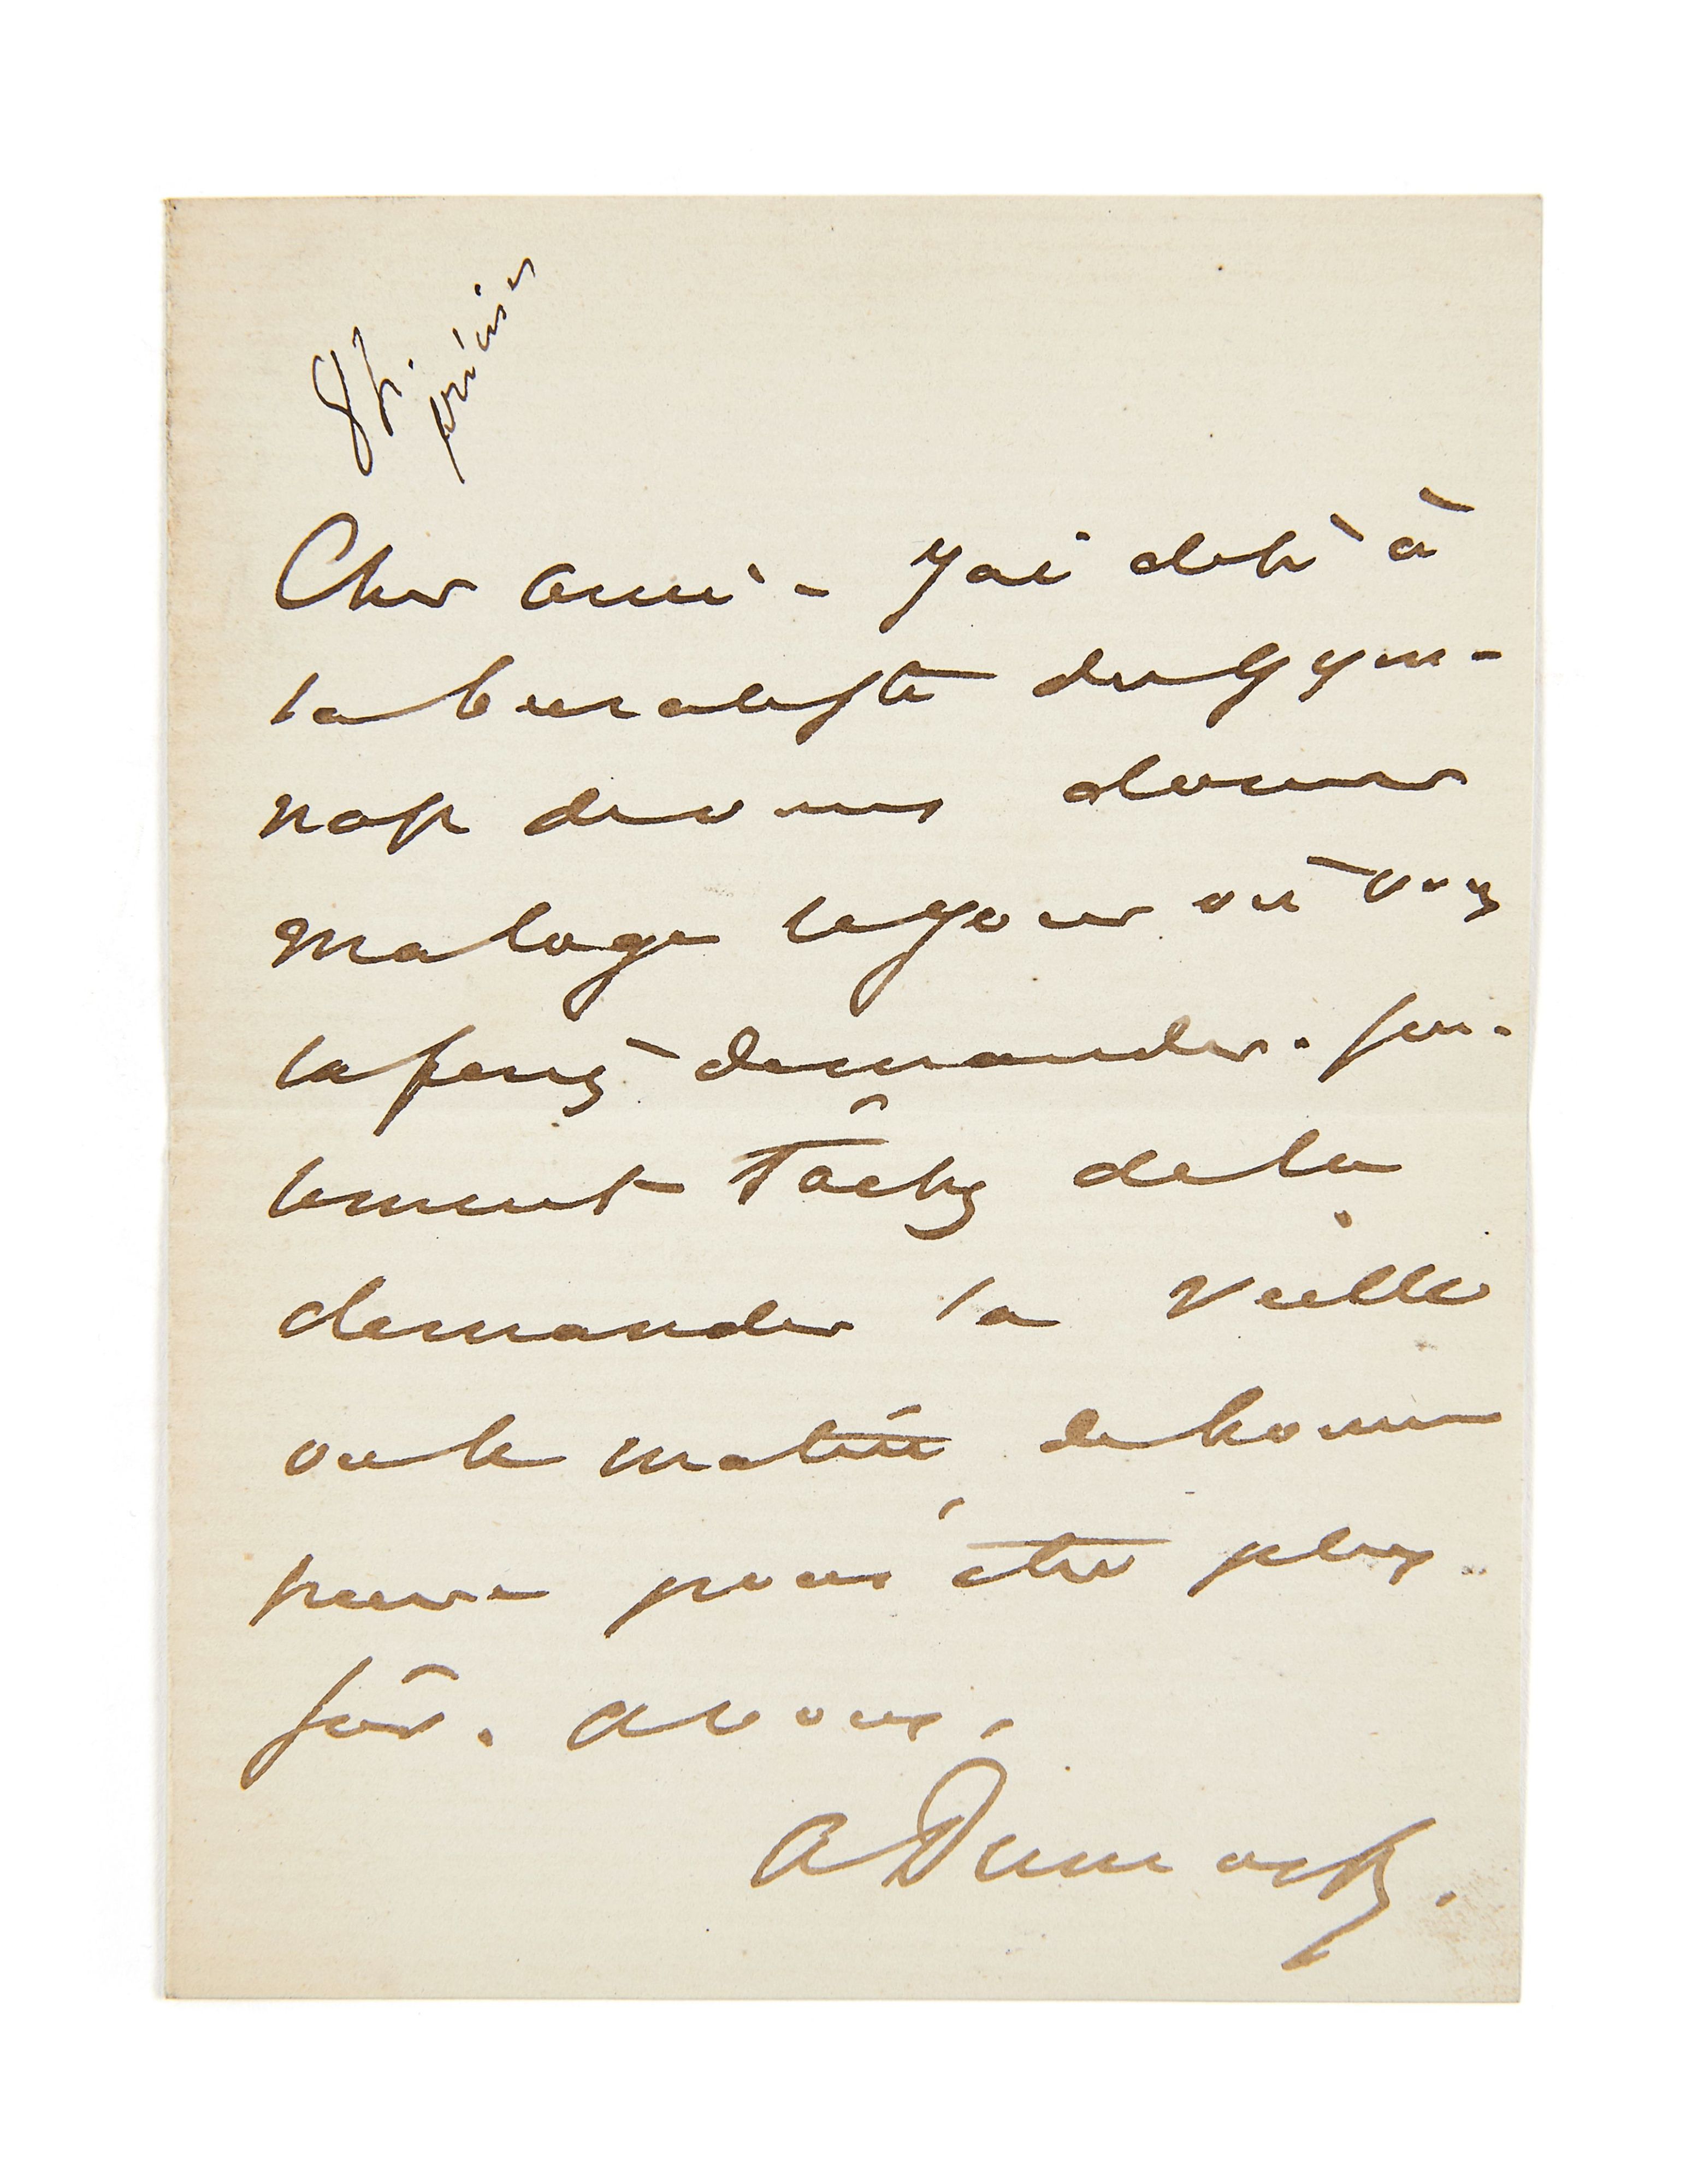 8 h.
précises
Cher ami - J'ai dit à
la buraliste du Gym-
nase de vous donner
ma loge le jour où vous
la ferez demander. seu-
lement tachez de la
demander la veille
ou le matin de bonne
heure pour être plus
sûr. A vous.
A Dumas f.